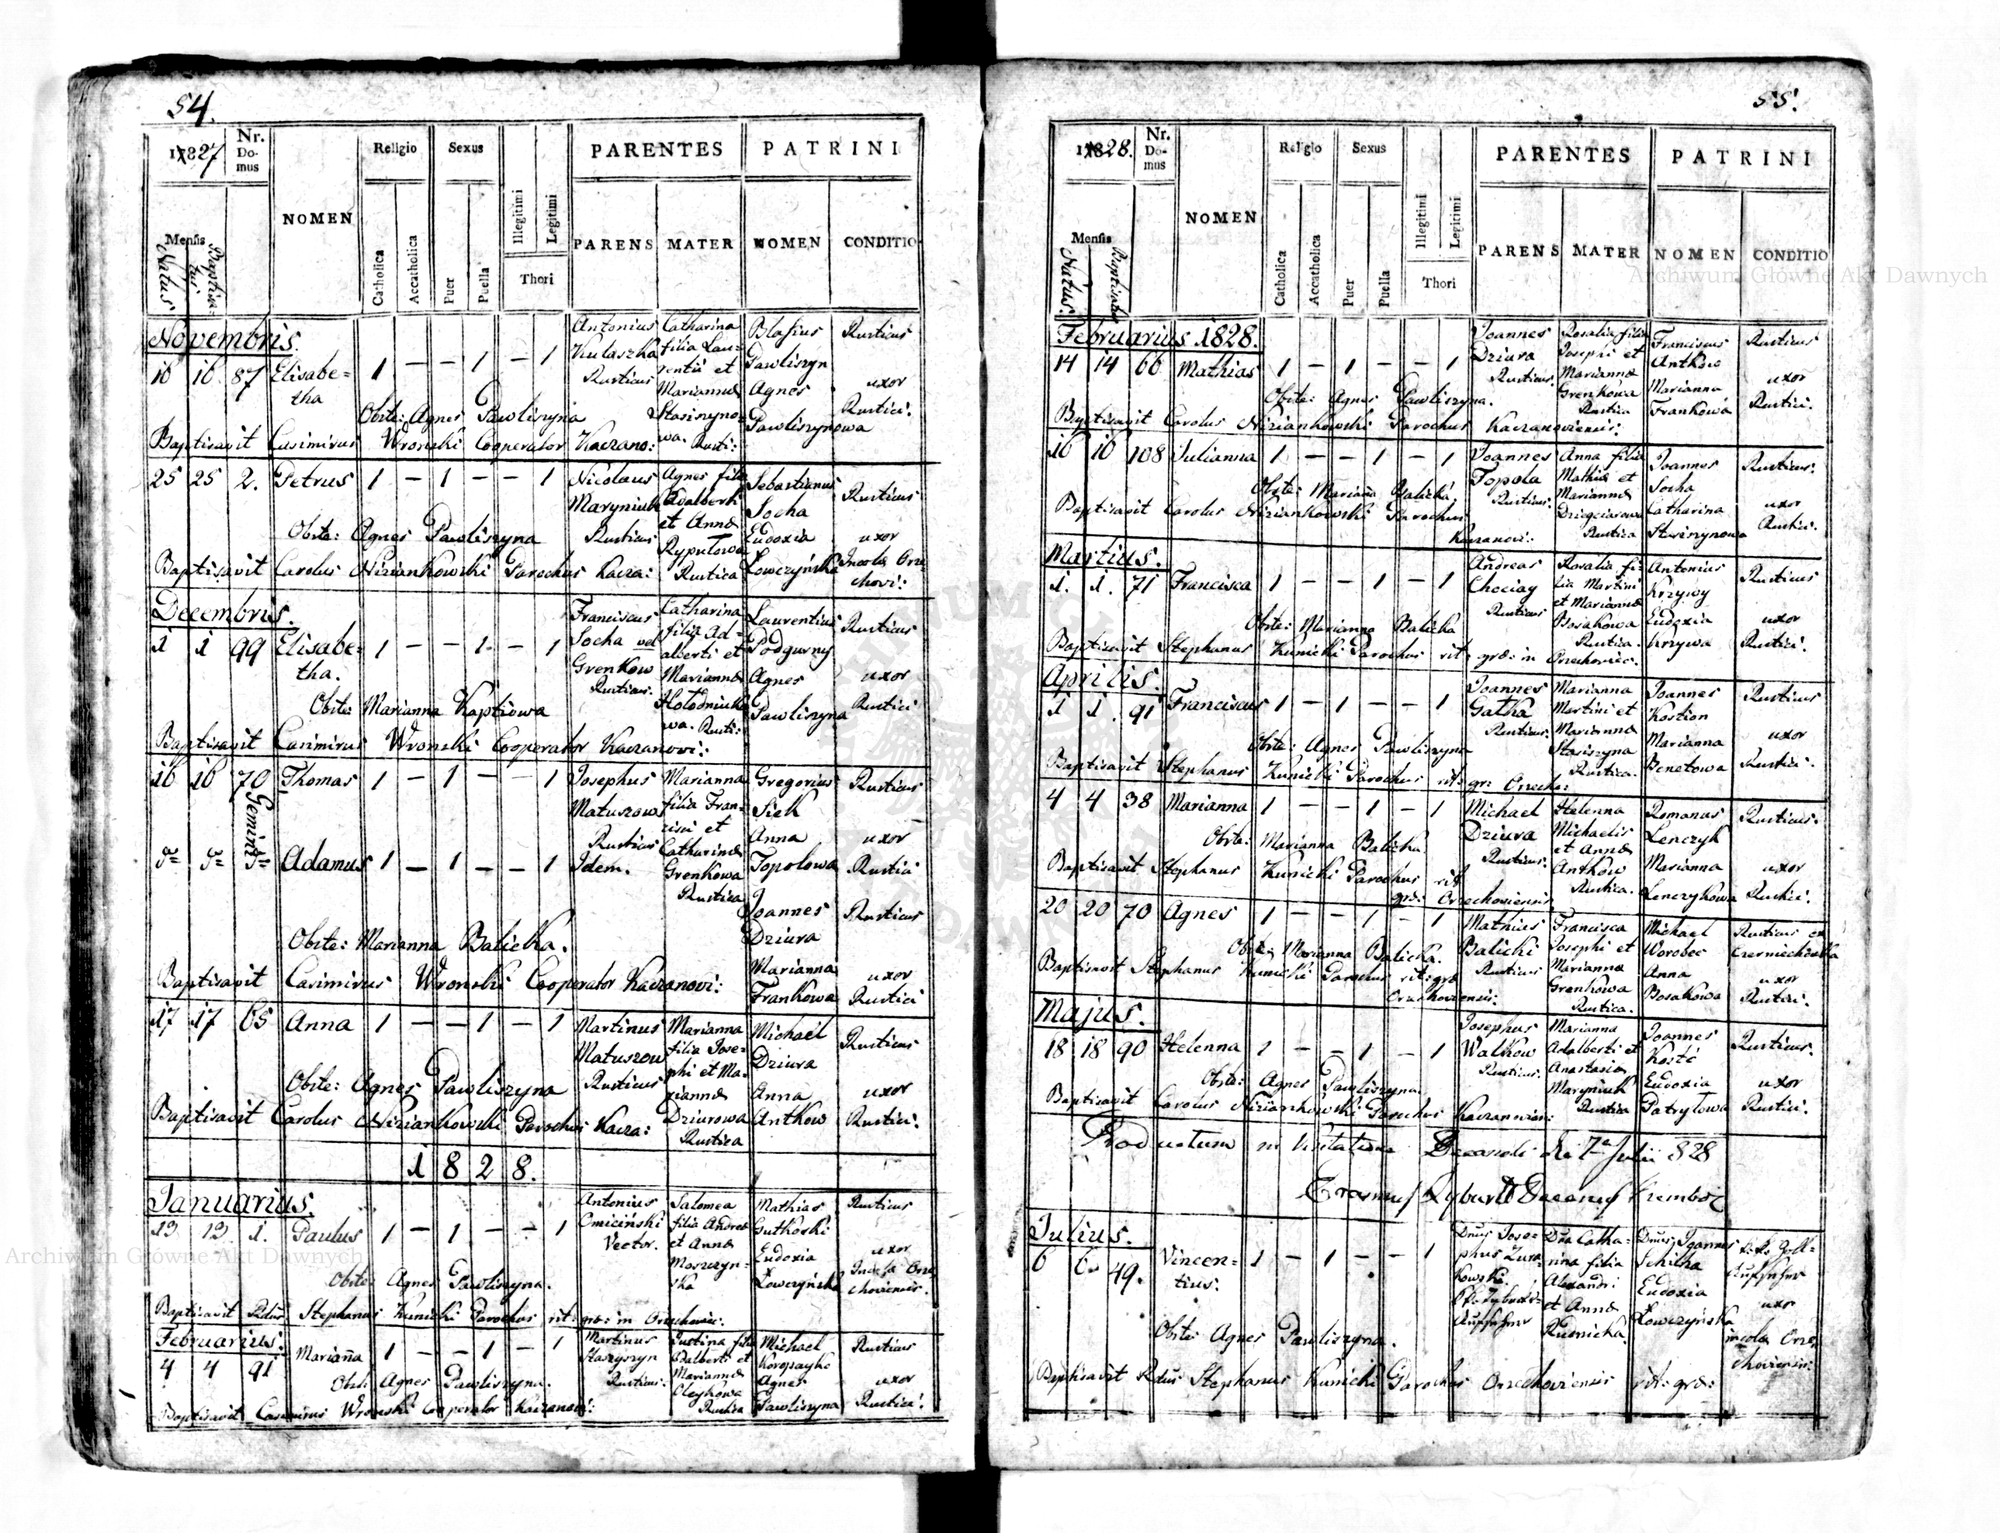 54.
1827 Nr. Domus NOMEN Religio Sexus PARENTES PATRINI
Mensis Natus Baptisatus Catholica Accatholica Puer Puella Illegitimi Legitimi Thori PARENS MATER NOMEN CONDITIO
Novembris.
16 16 87 Elisabetha 1 — — 1 — 1
Antonius Kulaszka Rusticus
Catharina filia Laurentii et Mariannæ Stasinynowa. Rusti:
Blasius Pawliszyn Agnes Pawliszynowa
Rusticus uxor Rustici.
Obste: Agnes Pawliszyna
Baptisavit Casimirus Wronski Cooperator Kaczano:
25 25 2. Petrus 1 — 1 — — 1
Nicolaus Maryniuk Rusticus
Agnes filia Adalberti et Annæ Ryputowa Rustica
Sebastianus Socha Eudoxia Łowczyńska
Rusticus uxor Incolæ Orzechovi:
Obste: Agnes Pawliszyna
Baptisavit Carolus Niziankowski Parochus Kacza:
Decembris.
1 1 99 Elisabetha. 1 — — 1 — 1
Franciscus Socha vel Grenkow Rusticus.
Catharina filia Adalberti et Mariannæ Hołodniukowa. Rusti:
Laurentius Podgurny Agnes Pawliszyna
Rusticus uxor Rustici
Obste: Marianna Kaptiowa
Baptisavit Casimirus Wronski Cooperator Kaczanovi:
16 16 70 Thomas 1 — 1 — — 1
Gemini
Josephus Matuszow Rusticus
Marianna filia Francisci et Catharinæ Grenkowa Rustica
Gregorius Siek Anna Topolowa
Rusticus uxor Rustici
Adamus 1 — 1 — — 1 Idem.
Joannes Dziura Marianna Frankowa
Rusticus uxor Rustici
Obste: Marianna Balicka.
Baptisavit Casimirus Wronski Cooperator Kaczanovi:
17 17 65 Anna 1 — — 1 — 1
Martinus Matuszow Rusticus
Marianna filia Josephi et Mariannæ Dziurowa Rustica
Michael Dziura Anna Anthow
Rusticus uxor Rustici.
Obste: Agnes Pawliszyna
Baptisavit Carolus Niziankowski Parochus Kacza:
1828.
Januarius.
13 13. 1. Paulus 1 — 1 — — 1
Antonius Omiciński Vector.
Salomea filia Andreæ et Annæ Moszczynska
Mathias Gutkoski Eudoxia Łowczyńska
Rusticus uxor Incola Orzechoviensis.
Obste: Agnes Pawliszyna.
Baptisavit Rdus Stephanus Kunicki Parochus rit: græ: in Orzechowiec.
Februarius.
4 4 91 Marianna 1 — — 1 — 1
Martinus Staszyszyn Rusticus.
Justina filia Adalberti et Mariannæ Oleykowa Rustica
Michael Koropayko Agnes Pawliszyna
Rusticus uxor Rustici.
Obste: Agnes Pawliszyna.
Baptisavit Casimirus Wronski Cooperator Kaczanovi:
55.
1828. Nr. Domus NOMEN Religio Sexus PARENTES PATRINI
Mensis Natus. Baptisatus Catholica Accatholica Puer Puella Illegitimi Legitimi Thori PARENS MATER NOMEN CONDITIO
Februarius 1828.
14 14 66 Mathias 1 — 1 — — 1
Joannes Dziura Rusticus.
Rosalia filia Josephi et Mariannæ Grenkowa Rustica
Franciscus Anthow Marianna Frankowa
Rusticus uxor Rustici.
Obste: Agnes Pawliszyna.
Baptisavit Carolus Niziankowski Parochus Kaczanoviensis.
16 16 108 Julianna 1 — — 1 — 1
Joannes Topola Rusticus.
Anna filia Mathiæ et Mariannæ Dzięgciarowa Rustica
Joannes Socha Catharina Stasinynowa
Rusticus. uxor Rustici.
Obste: Marianna Balicka.
Baptisavit Carolus Niziankowski Parochus Kaczanovi:
Martius.
1. 1. 71 Francisca 1 — — 1 — 1
Andreas Chociay Rusticus
Rosalia filia Martini et Mariannæ Bosakowa Rustica.
Antonius Krzywy Eudoxia Krzywa
Rusticus uxor Rustici.
Obste: Marianna Balicka
Baptisavit Stephanus Kunicki Parochus rit: græ: in Orzechowiec.
Aprilis.
1 1. 91 Franciscus 1 — 1 — — 1
Joannes Gatka Rusticus.
Marianna Martini et Marianna Stasiszyna Rustica.
Joannes Kostion Marianna Benetowa
Rusticus uxor Rustici.
Obste: Agnes Pawliszyna
Baptisavit Stephanus Kunicki Parochus rit: gr: Orzecho:
4 4 38 Marianna 1 — — 1 — 1
Michael Dziura Rusticus.
Helenna Michaelis et Annæ Anthow Rustica.
Romanus Lenczyk Marianna Lenczykowa
Rusticus. uxor Rustici.
Obste: Marianna Balicka
Baptisavit Stephanus Kunicki Parochus rit græ: Orzechoviensis
20 20 70 Agnes 1 — — 1 — 1
Mathias Balicki Rusticus
Francisca Josephi et Marianna Grenkowa Rustica.
Michael Worobec Anna Bosakowa
Rusticus ex Czerniechówka uxor Rustici.
Obste: Marianna Balicka.
Baptisavit Stephanus Kunicki Parochus rit: græ Orzechoviensis.
Majus.
18 18 90 Helenna 1 — — 1 — 1
Josephus Walkow Rusticus.
Marianna Adalberti et Anastasia Maryniuk Rustica
Joannes Kosté Eudoxia Patrylowa
Rusticus. uxor Rustici.
Obste: Agnes Pawliszyna.
Baptisavit Carolus Niziankowski Parochus Kaczanovien:
Productum in Visitatione Decanali die 7a Julii 828
Julius.
6 6. 49. Vincentius. 1 — 1 — — 1
Dnus Josephus Żurakowski.
Dna Catharina filia Alexandri et Annæ Rudnicka.
Dnus Joannes Schilha Eudoxia Łowczyńska
uxor incolæ Orzechoviensis
Obste: Agnes Pawliszyna.
Baptisavit Rdus Stephanus Kunicki Parochus Orzechoviensis rit: græ:
Archiwum Główne Akt Dawnych
Archiwum Główne Akt Dawnych